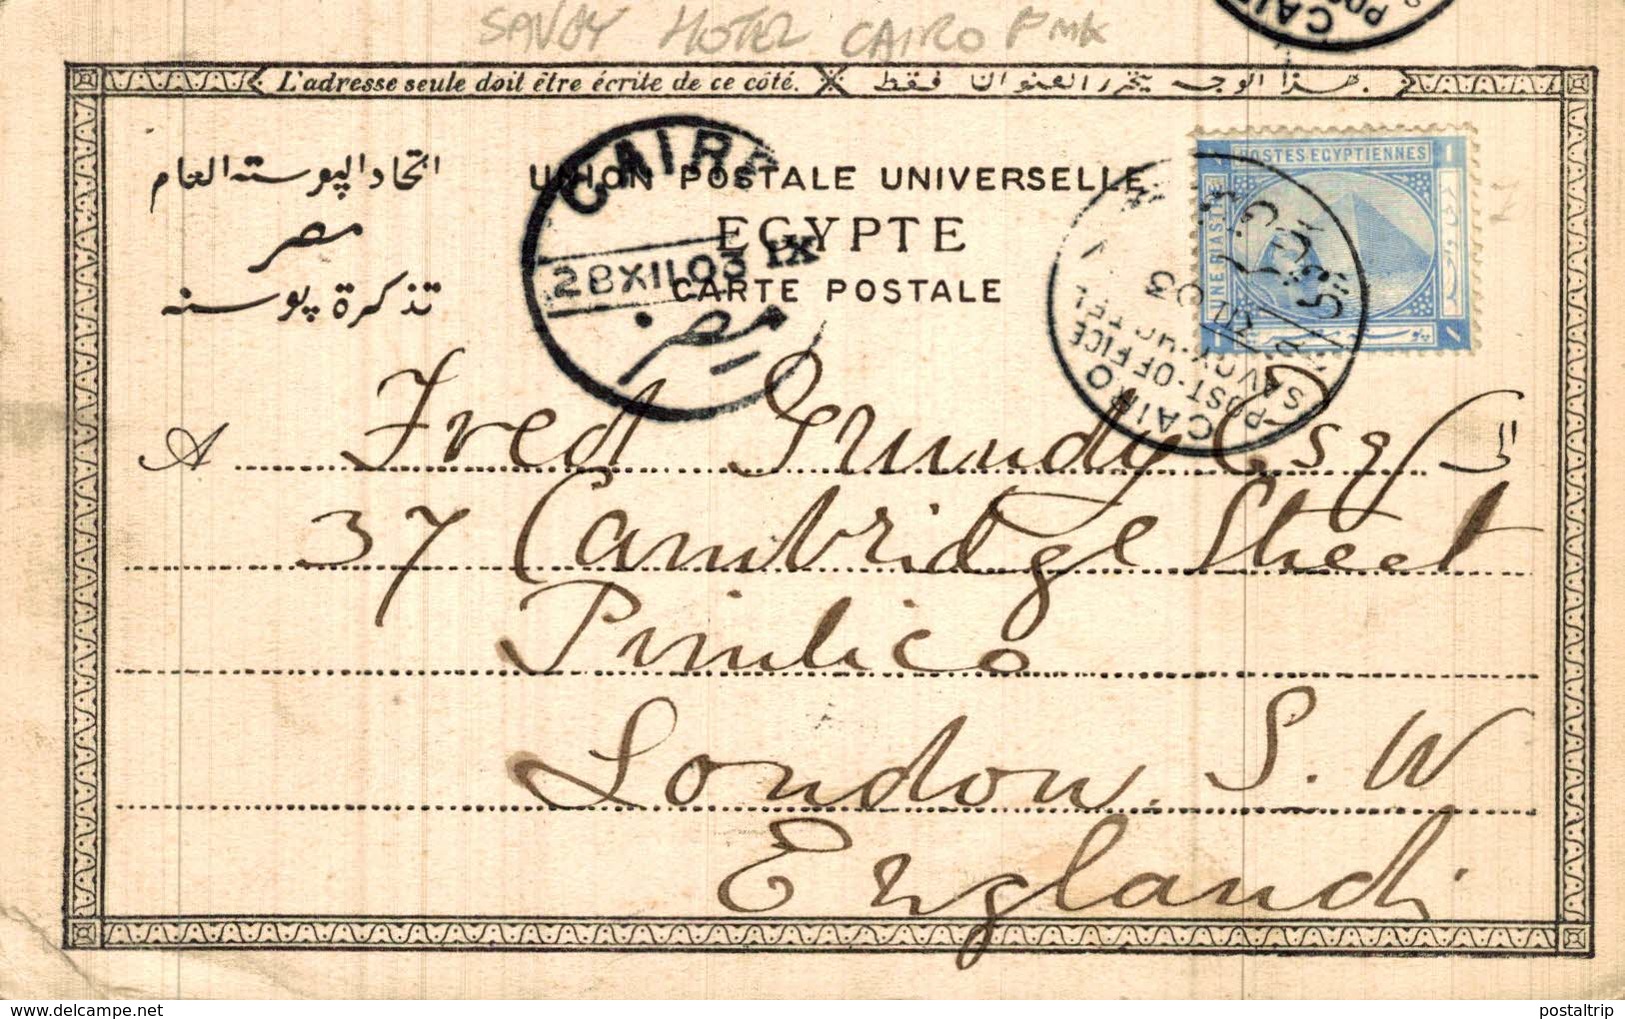 SAVOY HOTEL CAIRO PMK
CAIR
L'adresse seule doit être écrite de ce côté.
هذا الوجه يتحرر العنوان فقط.
اتحاد البوسته العام
مصر
تذكرة بوسته
UNION POSTALE UNIVERSELLE
EGYPTE
CARTE POSTALE
CAIRE
28 XII 03 IX
مصر
POSTES EGYPTIENNES
UNE PIASTRE
1
1
03
CAIRO
POST-OFFICE
SAVOY-HOTEL
A Fred Grundy Esq الى
37 Cambridge Street
Pimlico
London. S. W
England.
postaltrip